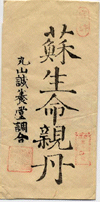 蘇生命親丹
丸山誠養堂調合